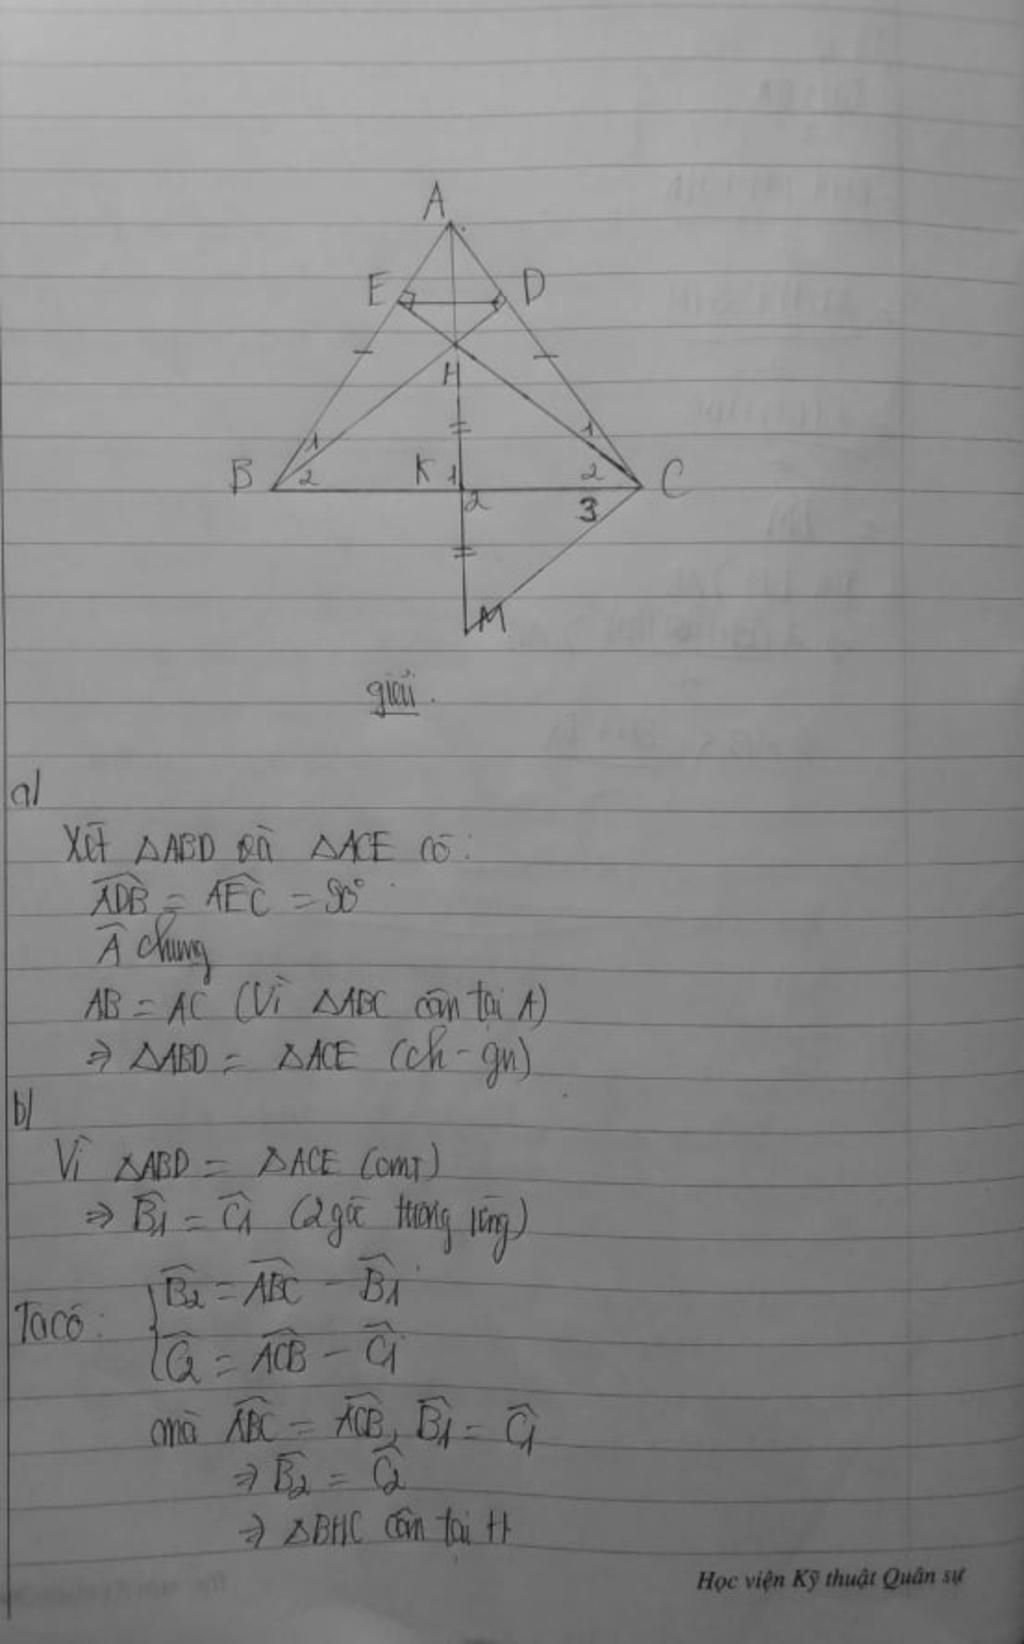 A
E
D
H
1
1
B
2
K
1
2
C
2
3
M
giải.
a/
Xét △ABD và △ACE có:
ADB̂ = AEĈ = 90°
Â chung
AB = AC (Vì △ABC cân tại A)
⇒ △ABD = △ACE (ch - gn)
b/
Vì △ABD = △ACE (cmt)
⇒ B̂1 = Ĉ1 (2 góc tương ứng)
Ta có: { B̂2 = ABĈ - B̂1
Ĉ2 = ACB̂ - Ĉ1
mà ABĈ = ACB̂, B̂1 = Ĉ1
⇒ B̂2 = Ĉ2
⇒ △BHC cân tại H
Học viện Kỹ thuật Quân sự